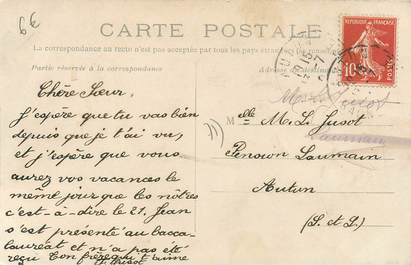 6€
CARTE POSTALE
La correspondance au recto n'est pas acceptée par tous les pays étrangers (se renseigner
Partie réservée à la correspondance
RÉPUBLIQUE FRANÇAISE
10
Chère Sœur,
J'espère que tu vas bien
depuis que je t'ai vu,
et j'espère que vous
aurez vos vacances le
même jour que les nôtres
c'est-à-dire le 21, Jean
s'est présenté au bacca-
lauréat et n'a pas été
reçu Ton frère qui t'aime
Melle M. L. Jusot
Pension Laumain
Autun
(S. et L.)